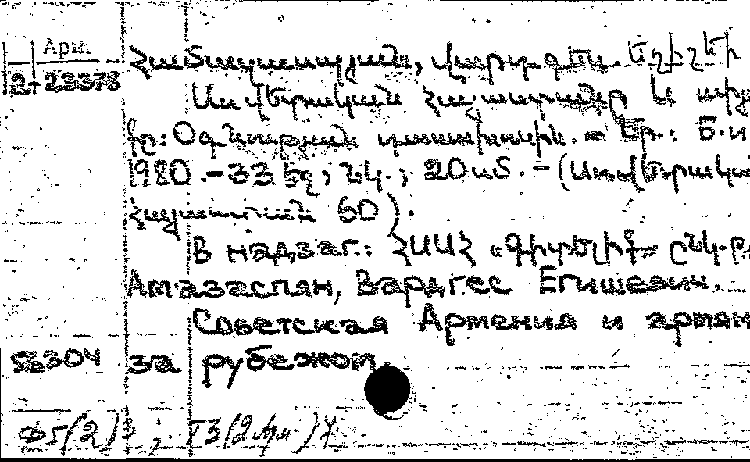 Арм.
2-23378
Համազասպյան, Վարդգես Եղիշեի
Սովետական Հայաստանը և սփյու
ռքը: Օգնության դասախոսին. - Եր.: Բ. и
1980. - 33 էջ, նկ.; 20 սմ. - (Սովետակա
Հայաստան 60).
В надзаг.: ՀՍՍՀ «Գիտելիք» ընկ.
Амазаспян, Вардгес Егишевич.
Советская Армения и армян
за рубежом
56304
Ф5(2)3 ; Т3(2Арм)7